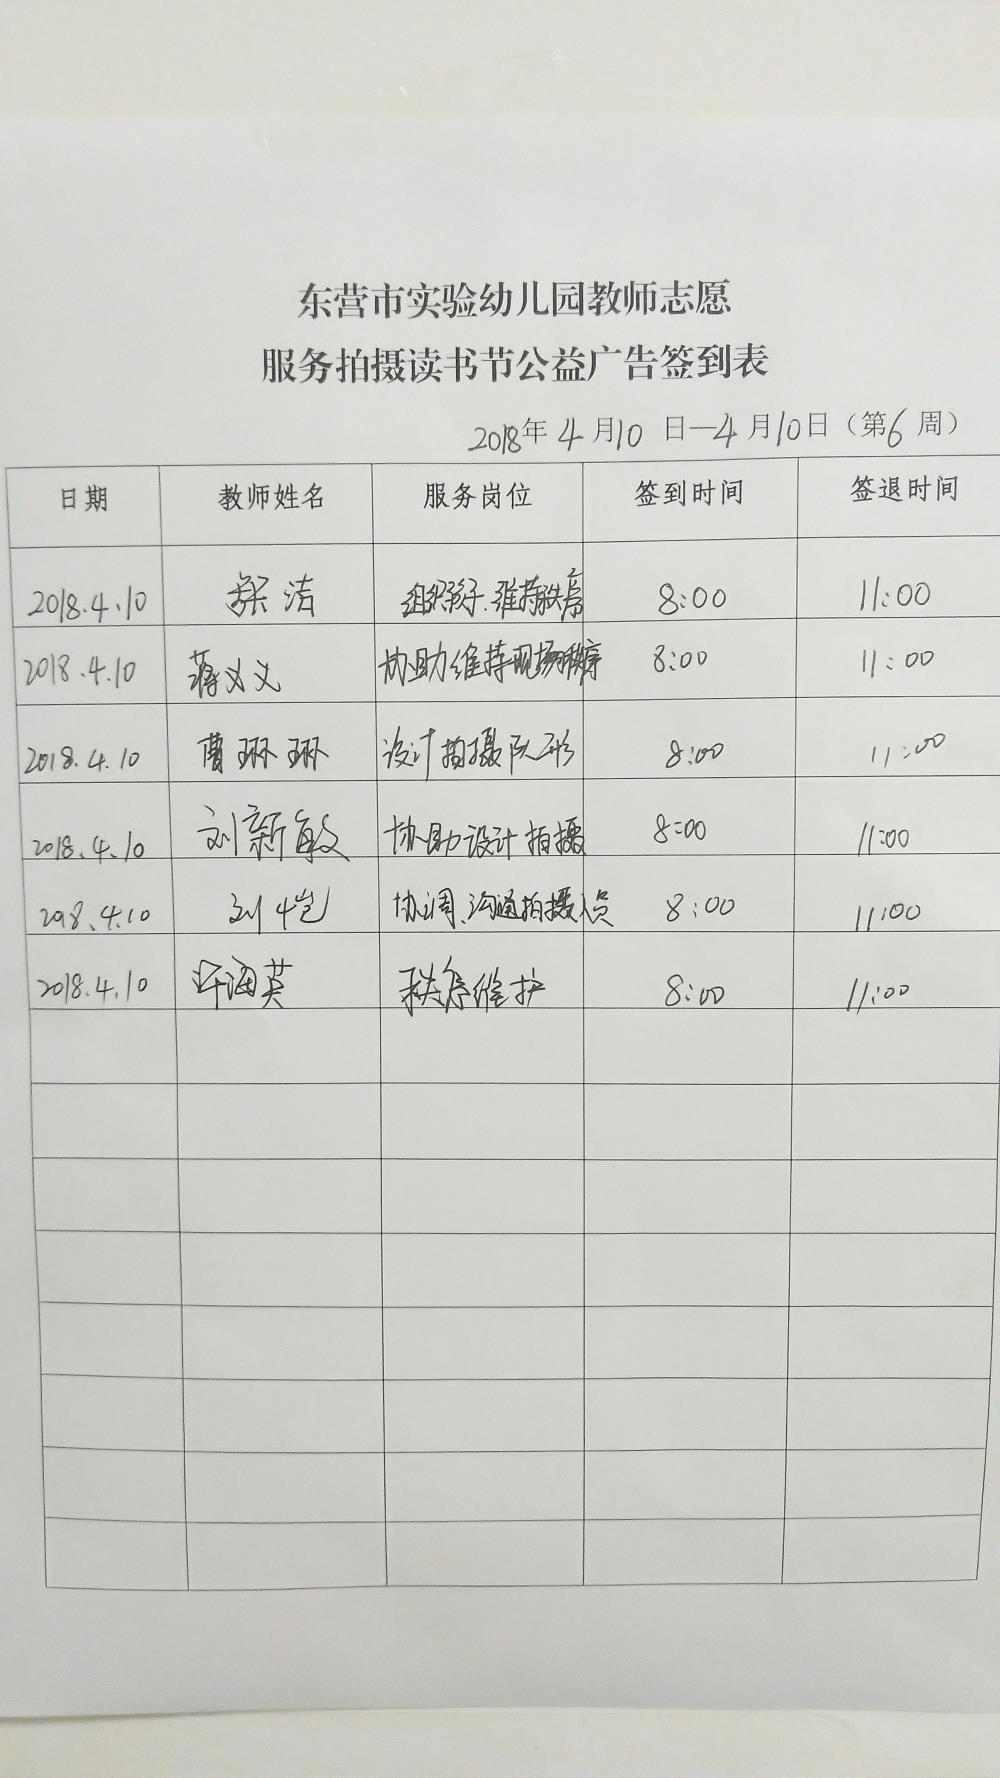 东营市实验幼儿园教师志愿
服务拍摄读书节公益广告签到表
2018年4月10日—4月10日（第6周）
日期 教师姓名 服务岗位 签到时间 签退时间
2018.4.10 洁 组织孩子、维持秩序 8:00 11:00
2018.4.10 蒋义义 协助维持现场秩序 8:00 11:00
2018.4.10 曹琳琳 设计拍摄队形 8:00 11:00
2018.4.10 刘新敏 协助设计拍摄 8:00 11:00
2018.4.10 刘恺 协调、沟通拍摄人员 8:00 11:00
2018.4.10 许海英 秩序维护 8:00 11:00